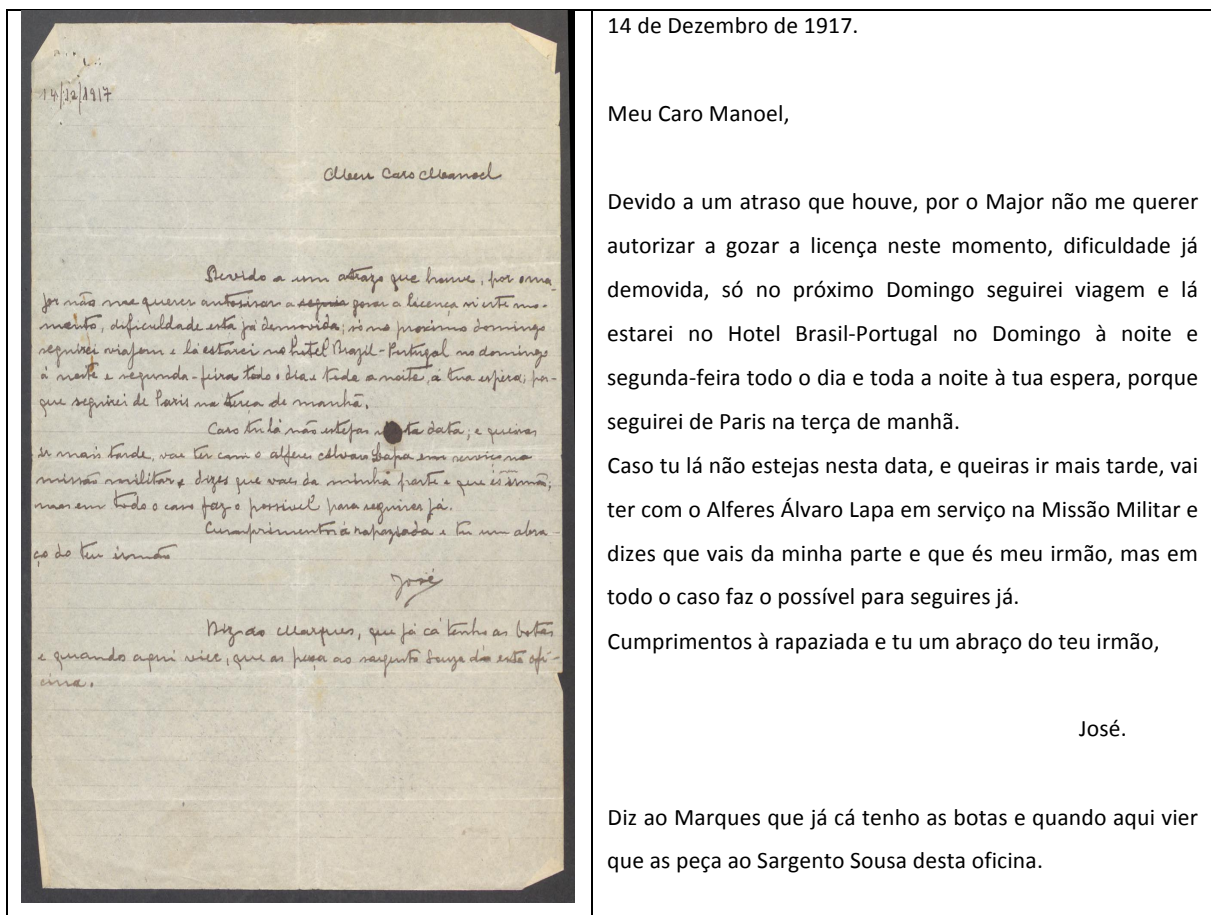 14/12/1917
Meu Caro Manoel
Devido a um atrazo que houve, por o ma-
jor não me querer autorizar a gozar a licença n'este mo-
mento, dificuldade esta já demovida; só no proximo domingo
seguirei viajem e lá estarei no hotel Brazil-Portugal no domingo
á noite e segunda-feira todo o dia e toda a noite, á tua espera, por-
que seguirei de Paris na terça de manhã.
Caso tu lá não estejas n'esta data, e queiras
ir mais tarde, vae ter com o alferes Alvaro Lapa em serviço na
missão militar e dizes que vaes da minha parte e que és irmão;
mas em todo o caso faz o possivel para seguires já.
Cumprimentos á rapaziada e tu um abra-
ço do teu irmão
José
Diz ao Marques, que já cá tenho as botas
e quando aqui vier, que as peça ao sargento Souza d'esta ofi-
cina.
14 de Dezembro de 1917.
Meu Caro Manoel,
Devido a um atraso que houve, por o Major não me querer
autorizar a gozar a licença neste momento, dificuldade já
demovida, só no próximo Domingo seguirei viagem e lá
estarei no Hotel Brasil-Portugal no Domingo à noite e
segunda-feira todo o dia e toda a noite à tua espera, porque
seguirei de Paris na terça de manhã.
Caso tu lá não estejas nesta data, e queiras ir mais tarde, vai
ter com o Alferes Álvaro Lapa em serviço na Missão Militar e
dizes que vais da minha parte e que és meu irmão, mas em
todo o caso faz o possível para seguires já.
Cumprimentos à rapaziada e tu um abraço do teu irmão,
José.
Diz ao Marques que já cá tenho as botas e quando aqui vier
que as peça ao Sargento Sousa desta oficina.